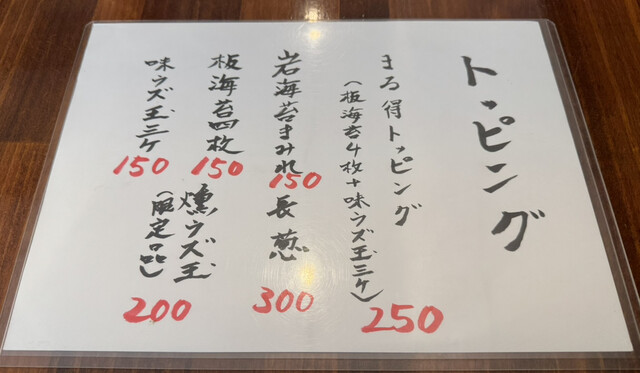 トッピング
まる得トッピング
(板海苔4枚+味ウズ玉三ケ)
250
岩海苔まみれ
150
長葱
300
板海苔四枚
150
味ウズ玉三ケ
150
燻ウズ玉
(限定品)
200